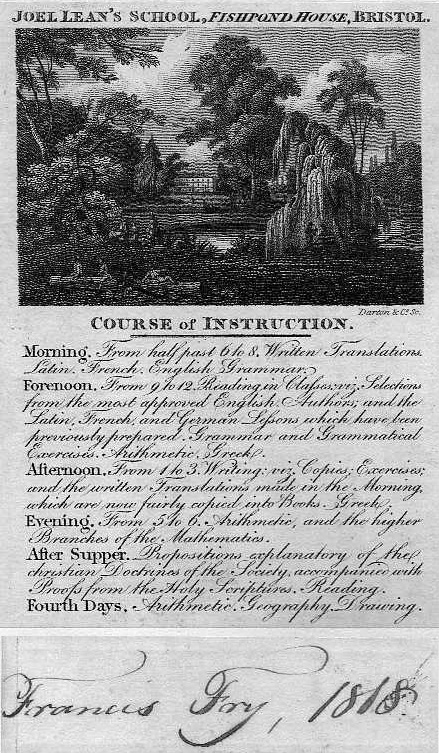 JOEL LEAN'S SCHOOL, FISHPOND HOUSE, BRISTOL.
Darton & Co. Sc.
COURSE of INSTRUCTION.
Morning. From half past 6 to 8. Written Translations.
Latin. French. English Grammar.
Forenoon. From 9 to 12. Reading in Classes; viz. Selections
from the most approved English Authors; and the
Latin, French, and German Lessons which have been
previously prepared. Grammar and Grammatical
Exercises. Arithmetic, Greek.
Afternoon. From 1 to 3. Writing: viz. Copies; Exercises;
and the written Translations made in the Morning,
which are now fairly copied into Books. Greek.
Evening. From 5 to 6. Arithmetic, and the higher
Branches of the Mathematics.
After Supper. Propositions explanatory of the
christian Doctrines of the Society, accompanied with
Proofs from the Holy Scriptures. Reading.
Fourth Days. Arithmetic. Geography. Drawing.
Francis Fry, 1818